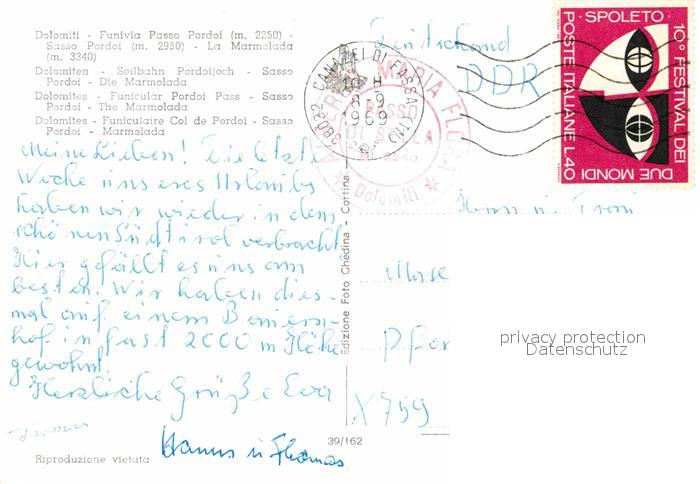 Dolomiti - Funivia Passo Pordoi (m. 2250) -
Sasso Pordoi (m. 2950) - La Marmolada
(m. 3340)
Dolomiten - Seilbahn Pordoijoch - Sasso
Pordoi - Die Marmolada
Dolomites - Funicular Pordoi Pass - Sasso
Pordoi - The Marmolada
Dolomites - Funiculaire Col de Pordoi - Sasso
Pordoi - Marmolada
Meine Lieben! Die letzte
Woche unseres Urlaubs
haben wir wieder in dem
schönen Südtirol verbracht
Hier gefällt es uns am
besten. Wir haben dies-
mal auf einem Bauern-
hof in fast 2000 m Höhe
gewohnt.
Herzliche Grüße Eure
Hanns u Thomas
Riproduzione vietata
39/162
Edizione Foto Ghèdina - Cortina
38032 CANAZEI DI FASSA (TN)
H
8-9
1969
MARIA FLORA
PASSO
DI SELLA
* Dolomiti *
DDR
SPOLETO · 10° FESTIVAL DEI
DUE MONDI
POSTE ITALIANE L.40
privacy protection
Datenschutz